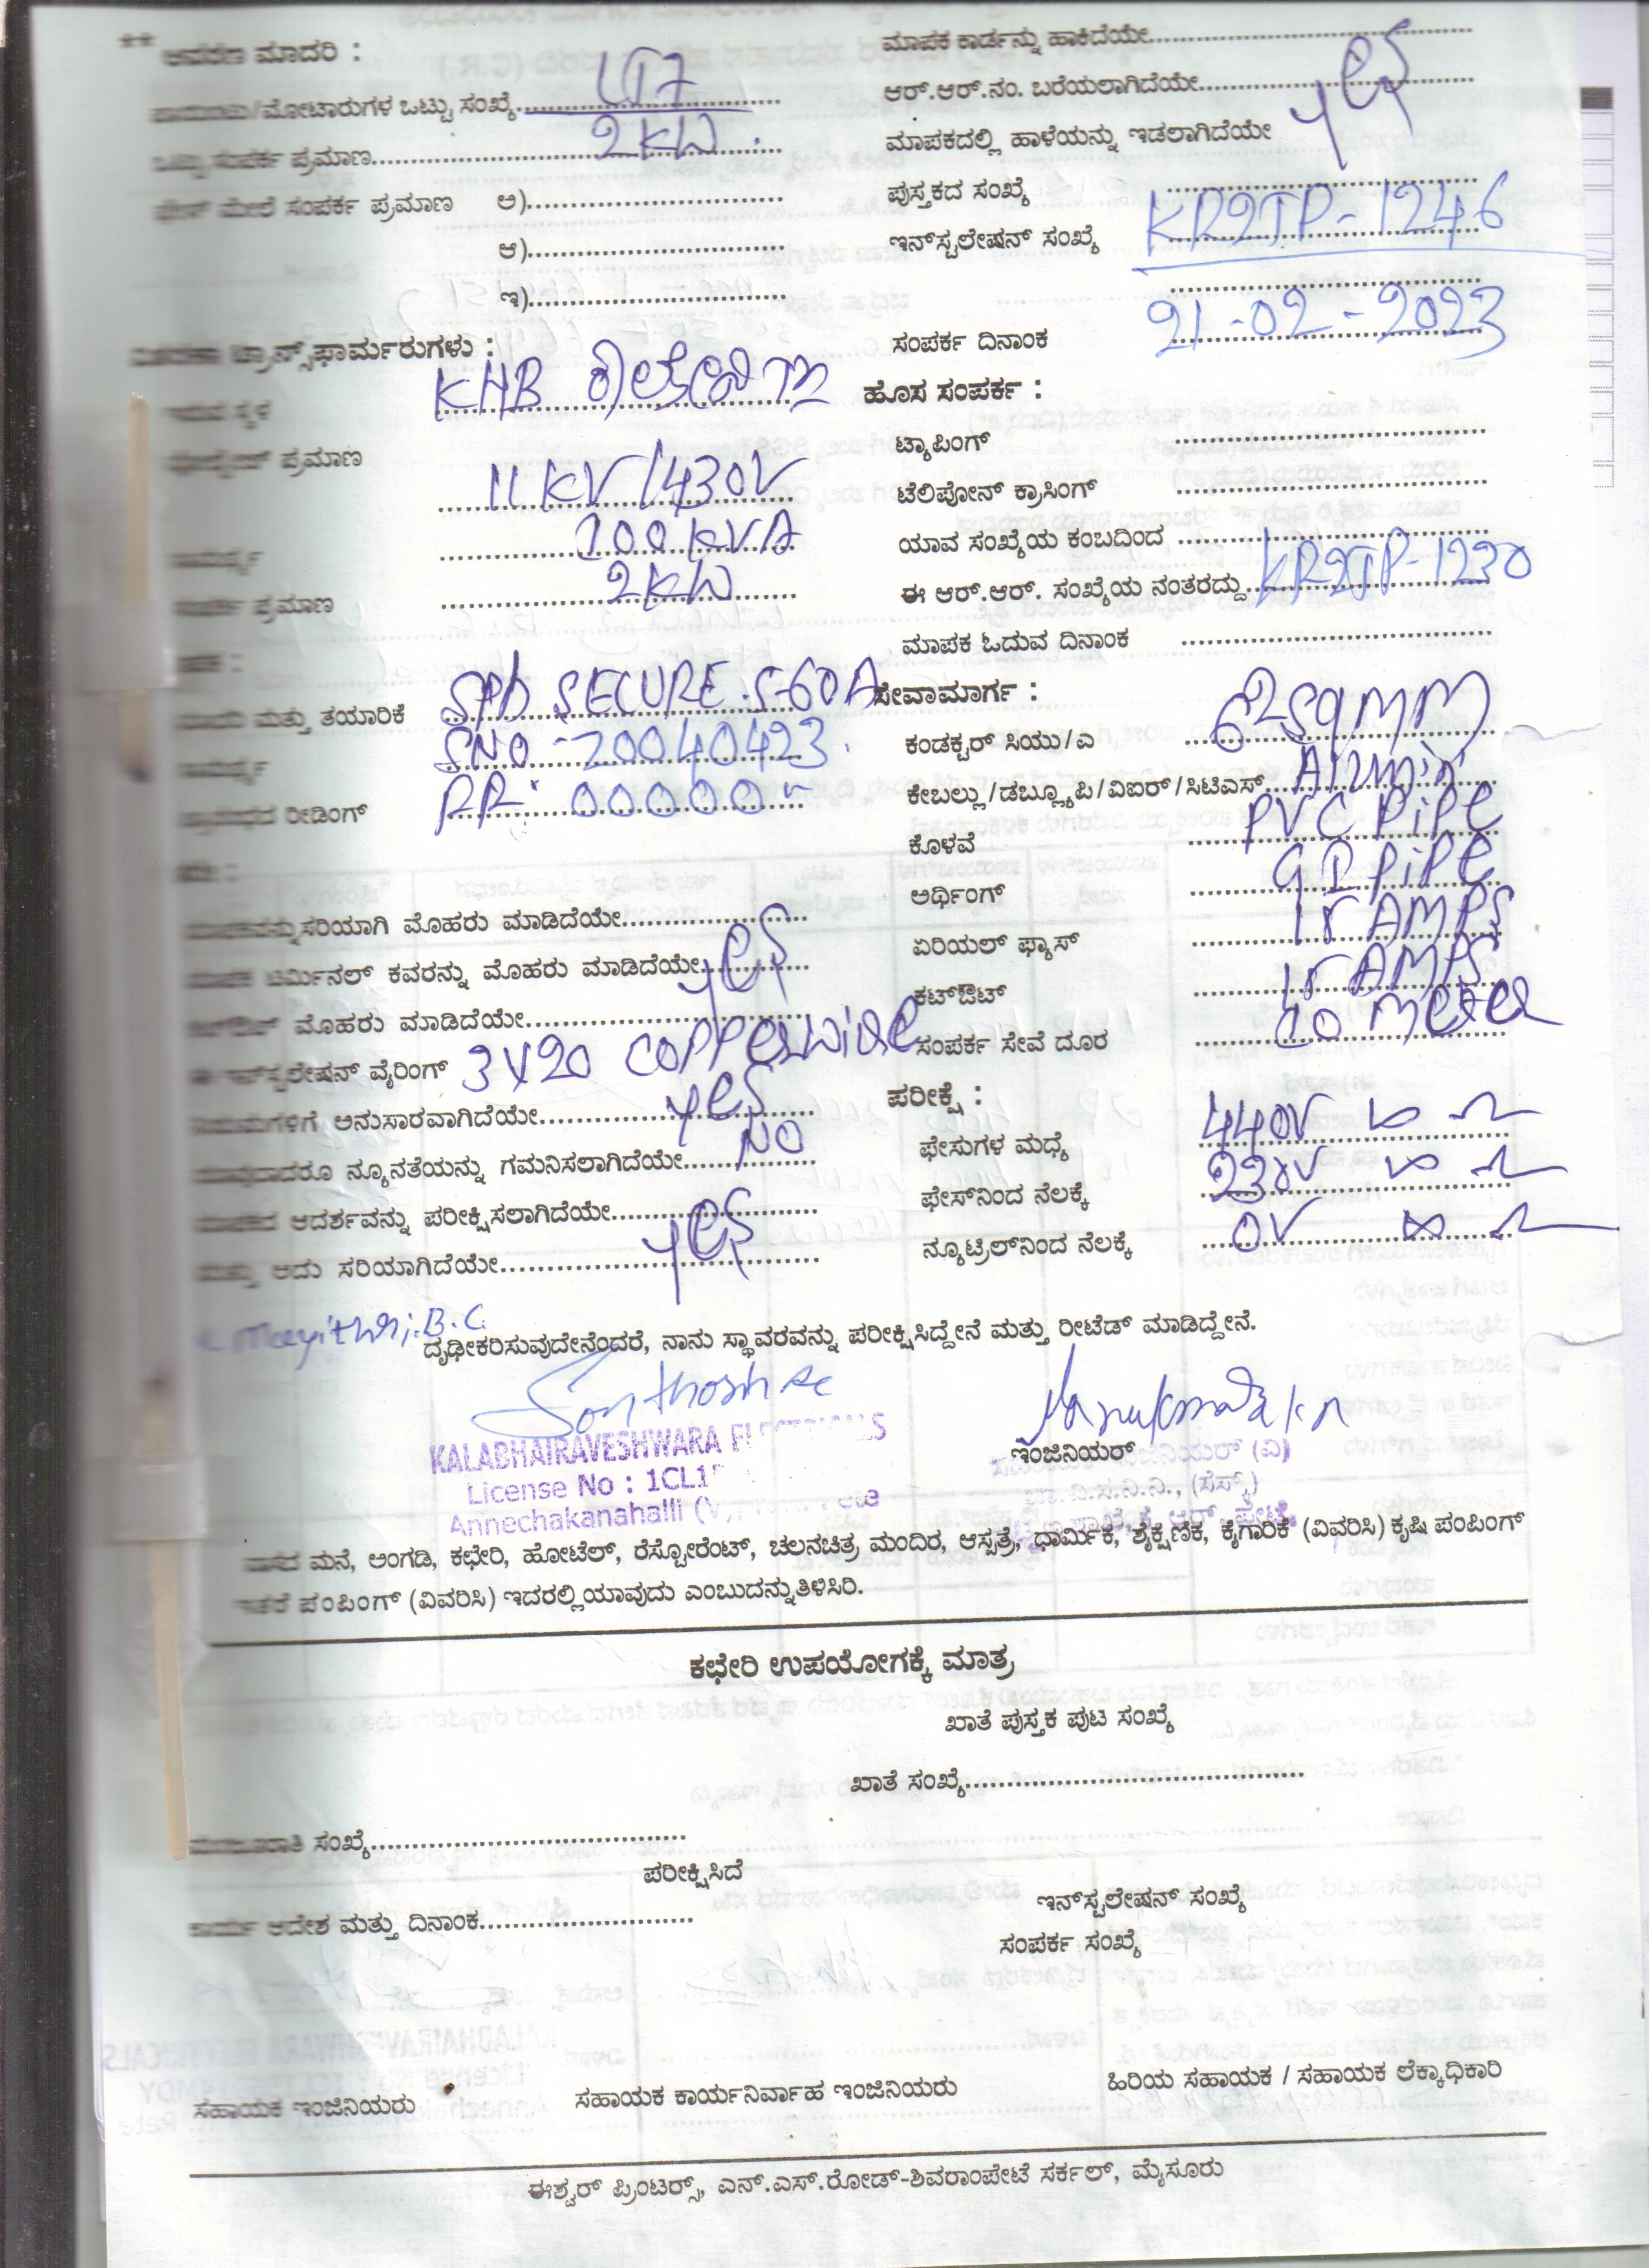 ** ಆವರಣ ಮಾದರಿ :
/ಮೋಟಾರುಗಳ ಒಟ್ಟು ಸಂಖ್ಯೆ
ಒಟ್ಟು ಸಂಪರ್ಕ ಪ್ರಮಾಣ 2KW
ಫೇಸ್ ಮೇಲೆ ಸಂಪರ್ಕ ಪ್ರಮಾಣ ಅ)
ಆ)
ಇ)
ಟ್ರಾನ್ಸ್‌ಫಾರ್ಮರುಗಳು :
ಇರುವ ಸ್ಥಳ KHB
ವೋಲ್ಟೇಜ್ ಪ್ರಮಾಣ 11KV/430V
ಸಾಮರ್ಥ್ಯ 100KVA
ಸಂಪರ್ಕ ಪ್ರಮಾಣ 2KW
ಮಾದರಿ ಮತ್ತು ತಯಾರಿಕೆ SECURE 5-60A
ಸಾಮರ್ಥ್ಯ SNO - 20040423
ರೀಡಿಂಗ್ 00000
ಸರಿಯಾಗಿ ಮೊಹರು ಮಾಡಿದೆಯೇ
ಮಾಪಕ ಟರ್ಮಿನಲ್ ಕವರನ್ನು ಮೊಹರು ಮಾಡಿದೆಯೇ yes
ಮೊಹರು ಮಾಡಿದೆಯೇ
ಈ ಇನ್‌ಸ್ಟಲೇಷನ್ ವೈರಿಂಗ್ 3X20 copperwire
ನಿಯಮಗಳಿಗೆ ಅನುಸಾರವಾಗಿದೆಯೇ yes
ಯಾವುದಾದರೂ ನ್ಯೂನತೆಯನ್ನು ಗಮನಿಸಲಾಗಿದೆಯೇ NO
ಮಾಪಕದ ಆದರ್ಶವನ್ನು ಪರೀಕ್ಷಿಸಲಾಗಿದೆಯೇ
ಮತ್ತು ಅದು ಸರಿಯಾಗಿದೆಯೇ yes
ಮಾಪಕ ಕಾರ್ಡನ್ನು ಹಾಕಿದೆಯೇ
ಆರ್.ಆರ್.ನಂ. ಬರೆಯಲಾಗಿದೆಯೇ yes
ಮಾಪಕದಲ್ಲಿ ಹಾಳೆಯನ್ನು ಇಡಲಾಗಿದೆಯೇ
ಪುಸ್ತಕದ ಸಂಖ್ಯೆ
ಇನ್‌ಸ್ಟಲೇಷನ್ ಸಂಖ್ಯೆ KR2TP-1246
ಸಂಪರ್ಕ ದಿನಾಂಕ 21-02-2023
ಹೊಸ ಸಂಪರ್ಕ :
ಟ್ಯಾಪಿಂಗ್
ಟೆಲಿಪೋನ್ ಕ್ರಾಸಿಂಗ್
ಯಾವ ಸಂಖ್ಯೆಯ ಕಂಬದಿಂದ
ಈ ಆರ್.ಆರ್. ಸಂಖ್ಯೆಯ ನಂತರದ್ದು KR2TP-1230
ಮಾಪಕ ಓದುವ ದಿನಾಂಕ
ಸೇವಾಮಾರ್ಗ :
ಕಂಡಕ್ಟರ್ ಸಿಯು/ಎ sqmm
ಕೇಬಲ್ಲು/ಡಬ್ಲ್ಯೂಪಿ/ವಿಐಆರ್/ಸಿಟಿಎಸ್
ಕೊಳವೆ PVC Pipe
ಅರ್ಥಿಂಗ್ GI Pipe
ಏರಿಯಲ್ ಫ್ಯೂಸ್ 15 AMPS
ಕಟ್‌ಔಟ್ 15 AMPS
ಸಂಪರ್ಕ ಸೇವೆ ದೂರ 10 meter
ಪರೀಕ್ಷೆ :
ಫೇಸುಗಳ ಮಧ್ಯೆ 440V ∞ Ω
ಫೇಸ್‌ನಿಂದ ನೆಲಕ್ಕೆ 230V ∞ Ω
ನ್ಯೂಟ್ರಲ್‌ನಿಂದ ನೆಲಕ್ಕೆ 0V ∞ Ω
B.C.
ದೃಢೀಕರಿಸುವುದೇನೆಂದರೆ, ನಾನು ಸ್ಥಾವರವನ್ನು ಪರೀಕ್ಷಿಸಿದ್ದೇನೆ ಮತ್ತು ರೀಟೆಡ್ ಮಾಡಿದ್ದೇನೆ.
Santhosh
KALABHAIRAVESHWARA ELECTRICALS
License No : 1CL1
Annechakanahalli (V)
ಇಂಜಿನಿಯರ್
ವಾಸದ ಮನೆ, ಅಂಗಡಿ, ಕಛೇರಿ, ಹೋಟೆಲ್, ರೆಸ್ಟೋರೆಂಟ್, ಚಲನಚಿತ್ರ ಮಂದಿರ, ಆಸ್ಪತ್ರೆ, ಧಾರ್ಮಿಕ, ಶೈಕ್ಷಣಿಕ, ಕೈಗಾರಿಕೆ (ವಿವರಿಸಿ) ಕೃಷಿ ಪಂಪಿಂಗ್
ಇತರೆ ಪಂಪಿಂಗ್ (ವಿವರಿಸಿ) ಇದರಲ್ಲಿ ಯಾವುದು ಎಂಬುದನ್ನು ತಿಳಿಸಿರಿ.
ಕಛೇರಿ ಉಪಯೋಗಕ್ಕೆ ಮಾತ್ರ
ಖಾತೆ ಪುಸ್ತಕ ಪುಟ ಸಂಖ್ಯೆ
ಖಾತೆ ಸಂಖ್ಯೆ
ಸಂಖ್ಯೆ
ಪರೀಕ್ಷಿಸಿದೆ
ಇನ್‌ಸ್ಟಲೇಷನ್ ಸಂಖ್ಯೆ
ಕಾರ್ಯ ಆದೇಶ ಮತ್ತು ದಿನಾಂಕ
ಸಂಪರ್ಕ ಸಂಖ್ಯೆ
ಸಹಾಯಕ ಇಂಜಿನಿಯರು
ಸಹಾಯಕ ಕಾರ್ಯನಿರ್ವಾಹ ಇಂಜಿನಿಯರು
ಹಿರಿಯ ಸಹಾಯಕ / ಸಹಾಯಕ ಲೆಕ್ಕಾಧಿಕಾರಿ
ಈಶ್ವರ್ ಪ್ರಿಂಟರ್ಸ್, ಎನ್.ಎಸ್.ರೋಡ್-ಶಿವರಾಂಪೇಟೆ ಸರ್ಕಲ್, ಮೈಸೂರು